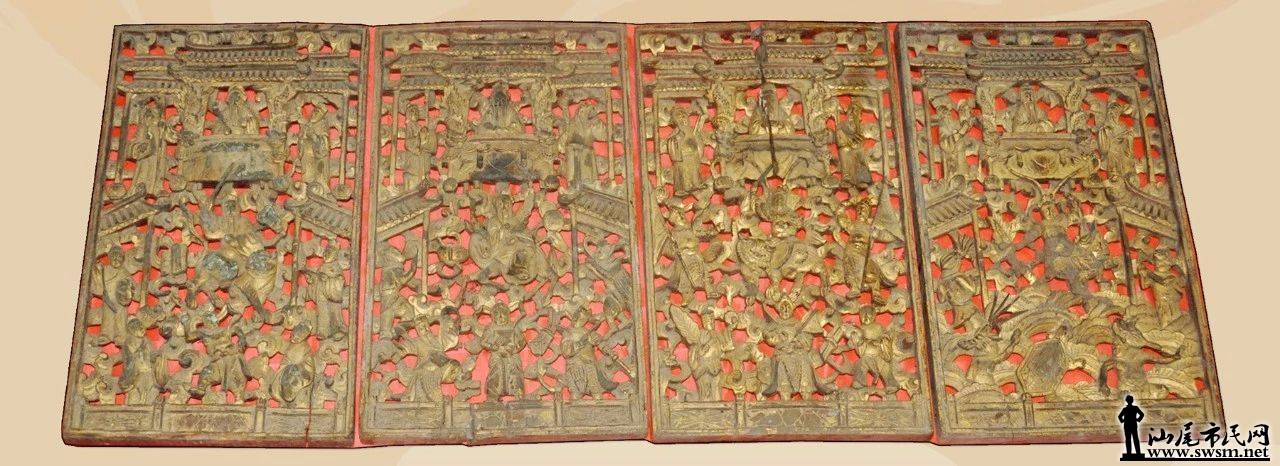 汕尾市民网
www.swsm.net